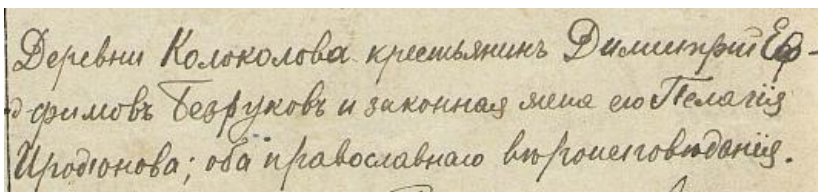 Деревни Колоколова крестьянинъ Димитрій Еф-
фимовъ Безруковъ и законная жена его Пелагія
Иродіонова; оба православнаго вѣроисповѣданія.